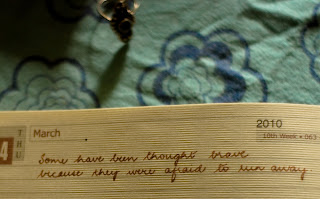 March
2010
10th Week • 063
4
THU
Some have been thought brave
because they were afraid to run away.